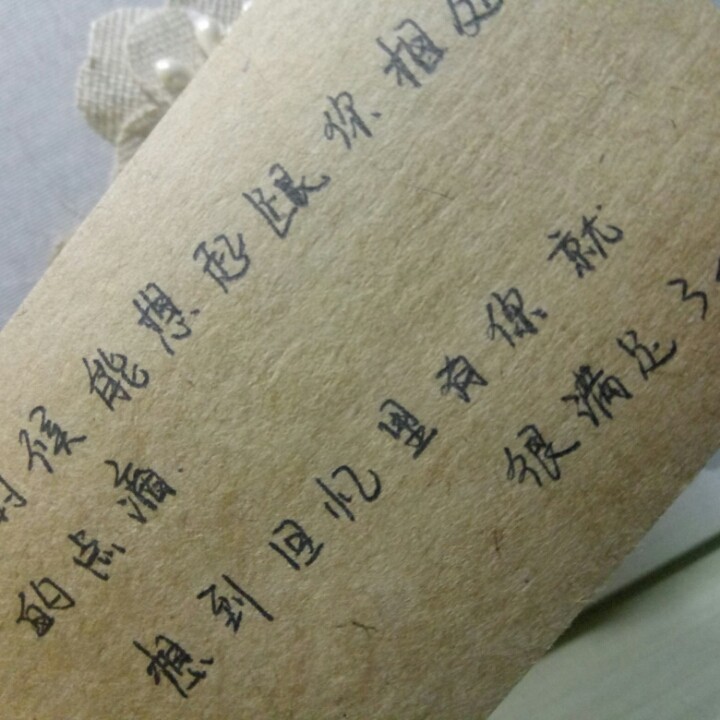 时候能想起跟你相处
的点滴
想到回忆里有你就
很满足了